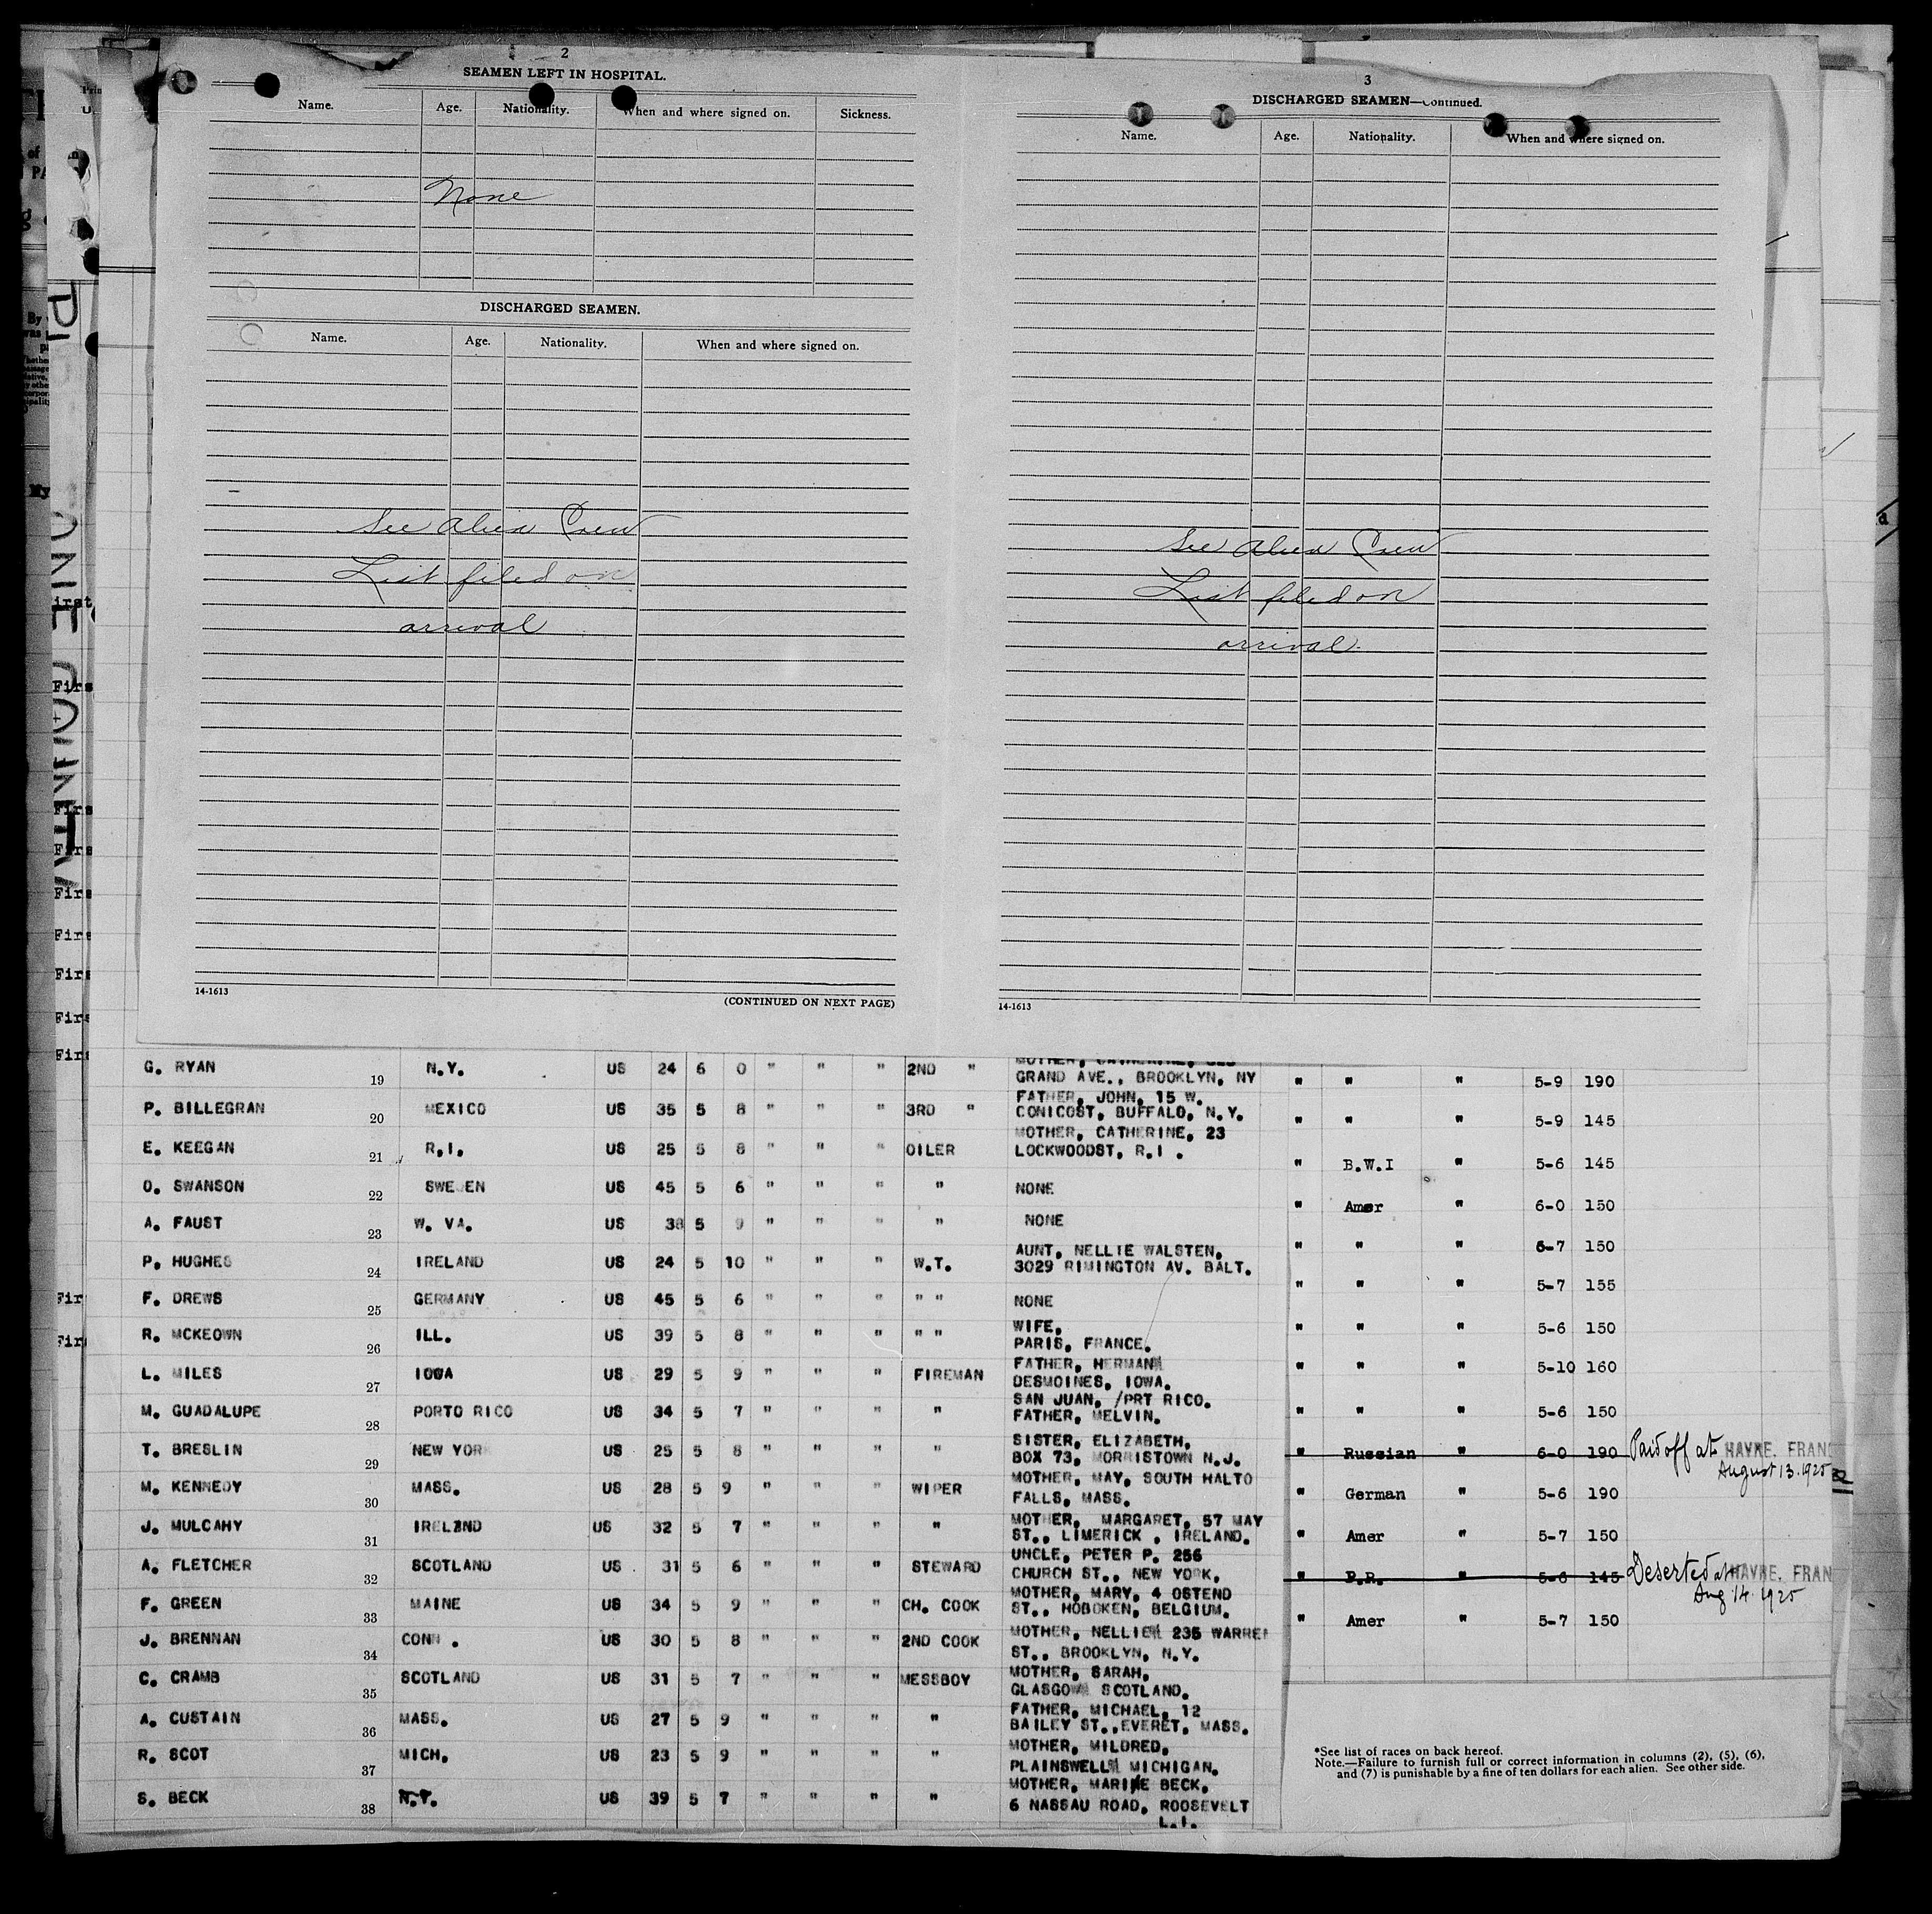 2
SEAMEN LEFT IN HOSPITAL.
Name. Age. Nationality. When and where signed on. Sickness.
None
DISCHARGED SEAMEN.
Name. Age. Nationality. When and where signed on.
See Alien Crew
List filed on
arrival
14-1613
(CONTINUED ON NEXT PAGE)
3
DISCHARGED SEAMEN—Continued.
Name. Age. Nationality. When and where signed on.
See Alien Crew
List filed on
arrival.
14-1613
G. RYAN 19 N.Y. US 24 6 0 " " " 2ND "
GRAND AVE., BROOKLYN, NY
P. BILLEGRAN 20 MEXICO US 35 5 8 " " " 3RD " FATHER, JOHN, 15 W.
CONICOST, BUFFALO, N.Y.
E. KEEGAN 21 R.I. US 25 5 8 " " " OILER MOTHER, CATHERINE, 23
LOCKWOODST, R.I .
O. SWANSON 22 SWEDEN US 45 5 6 " " " " NONE
A. FAUST 23 W. VA. US 38 5 9 " " " " NONE
P. HUGHES 24 IRELAND US 24 5 10 " " " W.T. AUNT, NELLIE WALSTEN,
3029 RIMINGTON AV. BALT.
F. DREWS 25 GERMANY US 45 5 6 " " " " " NONE
R. MCKEOWN 26 ILL. US 39 5 8 " " " " " WIFE,
PARIS, FRANCE.
L. MILES 27 IOWA US 29 5 9 " " " FIREMAN FATHER, HERMAN
DESMOINES, IOWA.
M. GUADALUPE 28 PORTO RICO US 34 5 7 " " " " SAN JUAN, /PRT RICO.
FATHER, MELVIN.
T. BRESLIN 29 NEW YORK US 25 5 8 " " " " SISTER, ELIZABETH,
BOX 73, MORRISTOWN N.J.
M. KENNEDY 30 MASS. US 28 5 9 " " " WIPER MOTHER, MAY, SOUTH HALTO
FALLS, MASS.
J. MULCAHY 31 IRELAND US 32 5 7 " " " " MOTHER, MARGARET, 57 MAY
ST., LIMERICK , IRELAND.
A. FLETCHER 32 SCOTLAND US 31 5 6 " " " STEWARD UNCLE, PETER P. 256
CHURCH ST., NEW YORK,
F. GREEN 33 MAINE US 34 5 9 " " " CH. COOK MOTHER, MARY, 4 OSTEND
ST., HOBOKEN, BELGIUM.
J. BRENNAN 34 CONN . US 30 5 8 " " " 2ND COOK MOTHER, NELLIE 235 WARREN
ST., BROOKLYN, N.Y.
C. CRAMB 35 SCOTLAND US 31 5 7 " " " MESSBOY MOTHER, SARAH,
GLASGOW SCOTLAND.
A. CUSTAIN 36 MASS. US 27 5 9 " " " " FATHER, MICHAEL, 12
BAILEY ST.,EVERET, MASS.
R. SCOT 37 MICH. US 23 5 9 " " " " MOTHER, MILDRED,
PLAINSWELL MICHIGAN.
S. BECK 38 N.Y. US 39 5 7 " " " " MOTHER, MARINE BECK,
6 NASSAU ROAD, ROOSEVELT
L.I.
" " " 5-9 190
" " " 5-9 145
" B.W.I " 5-6 145
" Amer " 6-0 150
" " " 6-7 150
" " " 5-7 155
" " " 5-6 150
" " " 5-10 160
" " " 5-6 150
" Russian " 6-0 190 Paid off at HAVRE, FRAN
August 13. 1925
" German " 5-6 190
" Amer " 5-7 150
" P.R. " 5-6 145 Deserted at HAVRE, FRAN
Aug 14. 1925
" Amer " 5-7 150
*See list of races on back hereof.
Note.—Failure to furnish full or correct information in columns (2), (5), (6),
and (7) is punishable by a fine of ten dollars for each alien. See other side.